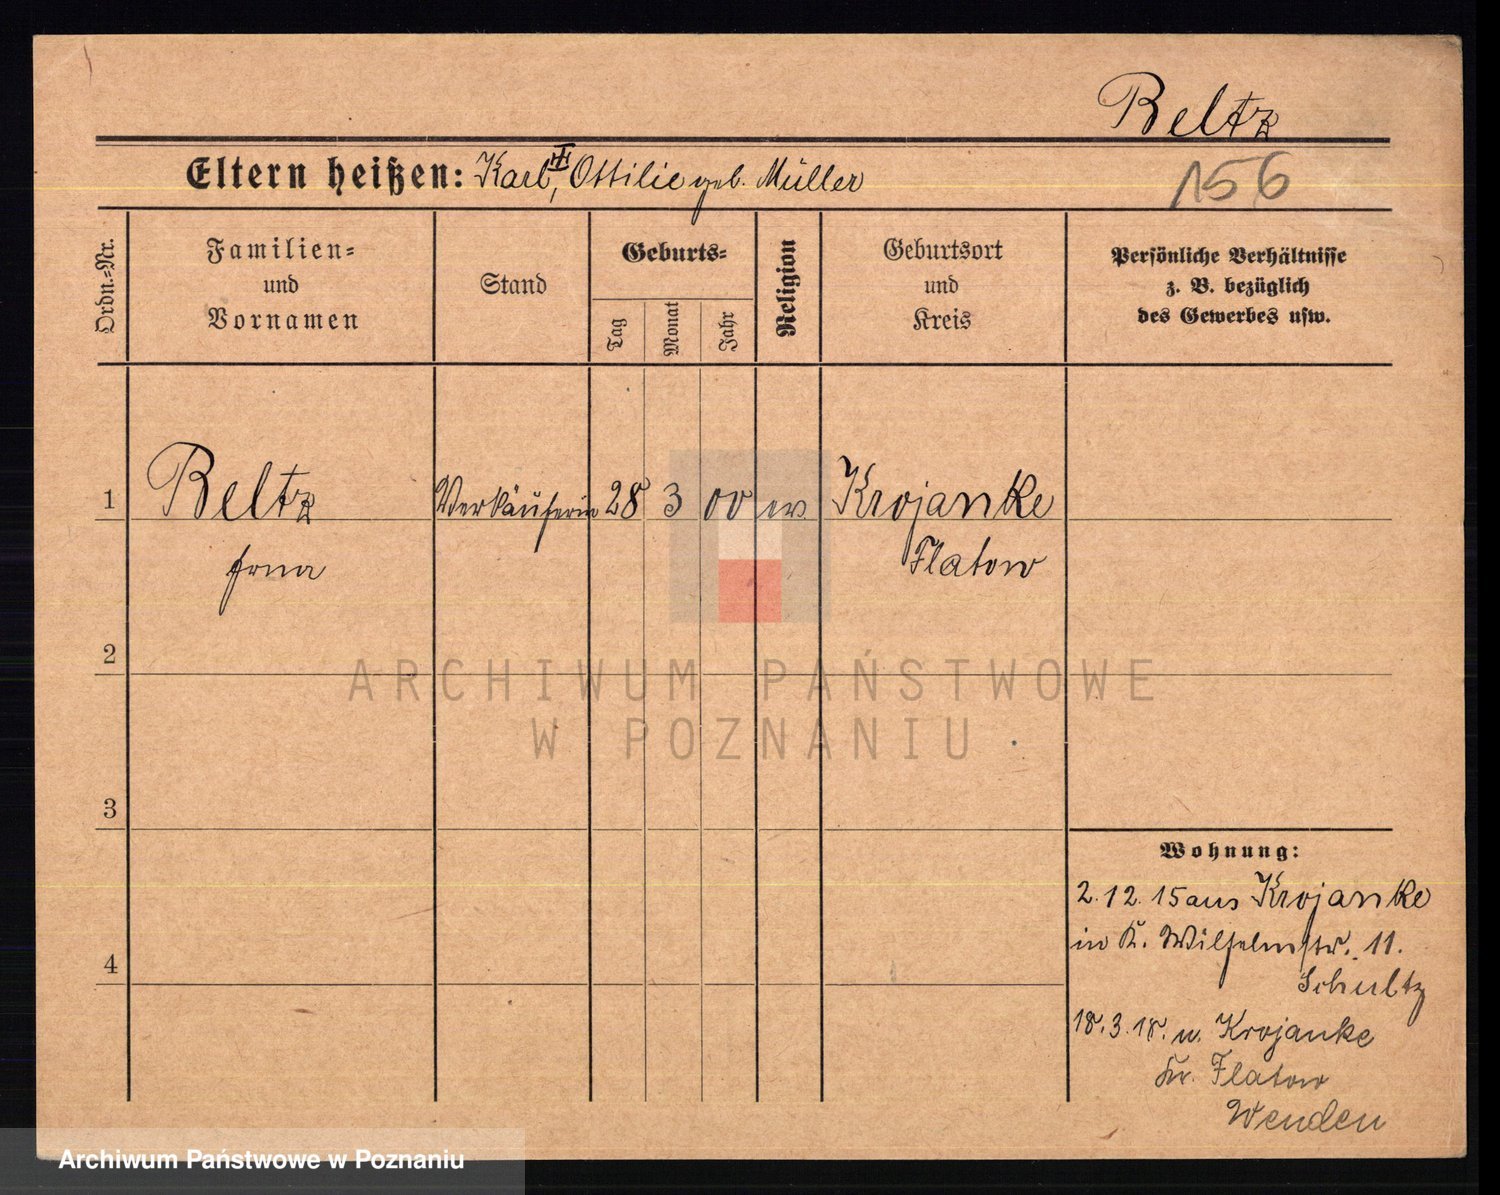 Beltz
Eltern heißen: Karl, Ottilie geb. Müller
156
Ordn.-Nr.
Familien-
und
Vornamen
Stand
Geburts-
Tag
Monat
Jahr
Religion
Geburtsort
und
Kreis
Persönliche Verhältnisse
z. B. bezüglich
des Gewerbes usw.
1
Beltz Verkäuferin 28 3 00 ev. Krojanke
Erna Flatow
2
ARCHIWUM PAŃSTWOWE
W POZNANIU
3
Wohnung:
2.12.15 aus Krojanke
in K. Wilhelmstr. 11.
4
Schultz
18.3.18. n. Krojanke
Kr. Flatow
Wenden
Archiwum Państwowe w Poznaniu